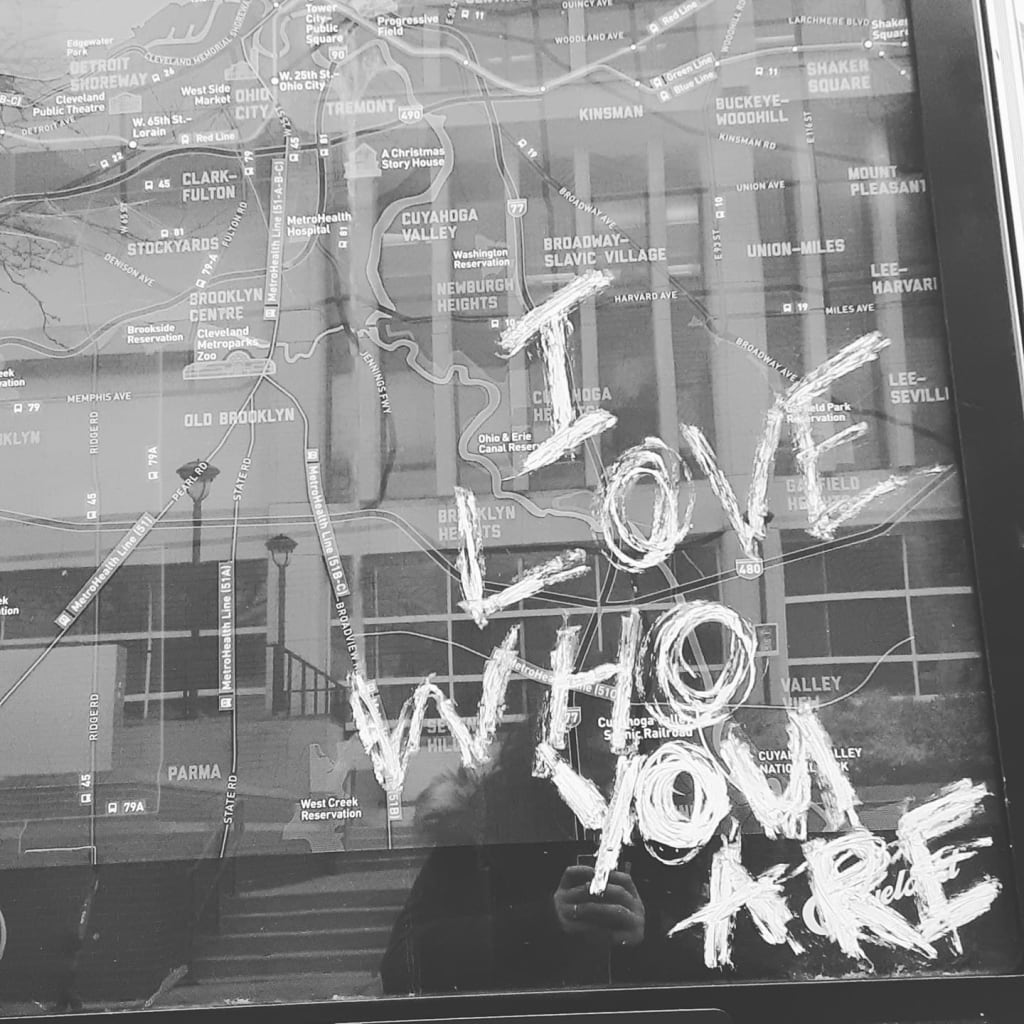 Tower
City–
Public
Square
Progressive
Field
11
QUINCY AVE
Red Line
WOODLAND AVE
LARCHMERE BLVD
Shaker
Square
Edgewater
Park
DETROIT
SHOREWAY
26
CLEVELAND MEMORIAL SHOREWAY
90
W. 25th St.–
Ohio City
Green Line
Blue Line
11
SHAKER
SQUARE
Cleveland
Public Theatre
West Side
Market
OHIO
CITY
TREMONT
490
KINSMAN
BUCKEYE–
WOODHILL
E 116 ST
DETROIT AVE
W. 65th St.–
Lorain
Red Line
KINSMAN RD
22
79
45
81
A Christmas
Story House
19
45
CLARK–
FULTON
MOUNT
PLEASANT
UNION AVE
W 65 ST
FULTON RD
MetroHealth Line (51-A-B-C)
MetroHealth
Hospital
81
CUYAHOGA
VALLEY
77
BROADWAY AVE
10
E 93 ST
81
STOCKYARDS
79-A
Washington
Reservation
BROADWAY–
SLAVIC VILLAGE
UNION-MILES
DENISON AVE
BROOKLYN
CENTRE
NEWBURGH
HEIGHTS
HARVARD AVE
LEE–
HARVARD
19
MILES AVE
Brookside
Reservation
Cleveland
Metroparks
Zoo
10
BROADWAY AVE
JENNINGS FWY
79
MEMPHIS AVE
RIDGE RD
OLD BROOKLYN
CUYAHOGA
HEIGHTS
Garfield Park
Reservation
LEE–
SEVILLE
79A
PEARL RD
STATE RD
Ohio & Erie
Canal Reservation
45
GARFIELD
HEIGHTS
BROOKLYN
HEIGHTS
480
MetroHealth Line (51)
MetroHealth Line (51A)
MetroHealth Line (51B-C)
BROADVIEW
MetroHealth Line (51C)
77
VALLEY
VIEW
SEVEN
HILLS
Cuyahoga Valley
Scenic Railroad
RIDGE RD
PARMA
STATE RD
CUYAHOGA VALLEY
NATIONAL PARK
45
79A
West Creek
Reservation
51B
I
LOVE
WHO
YOU
ARE